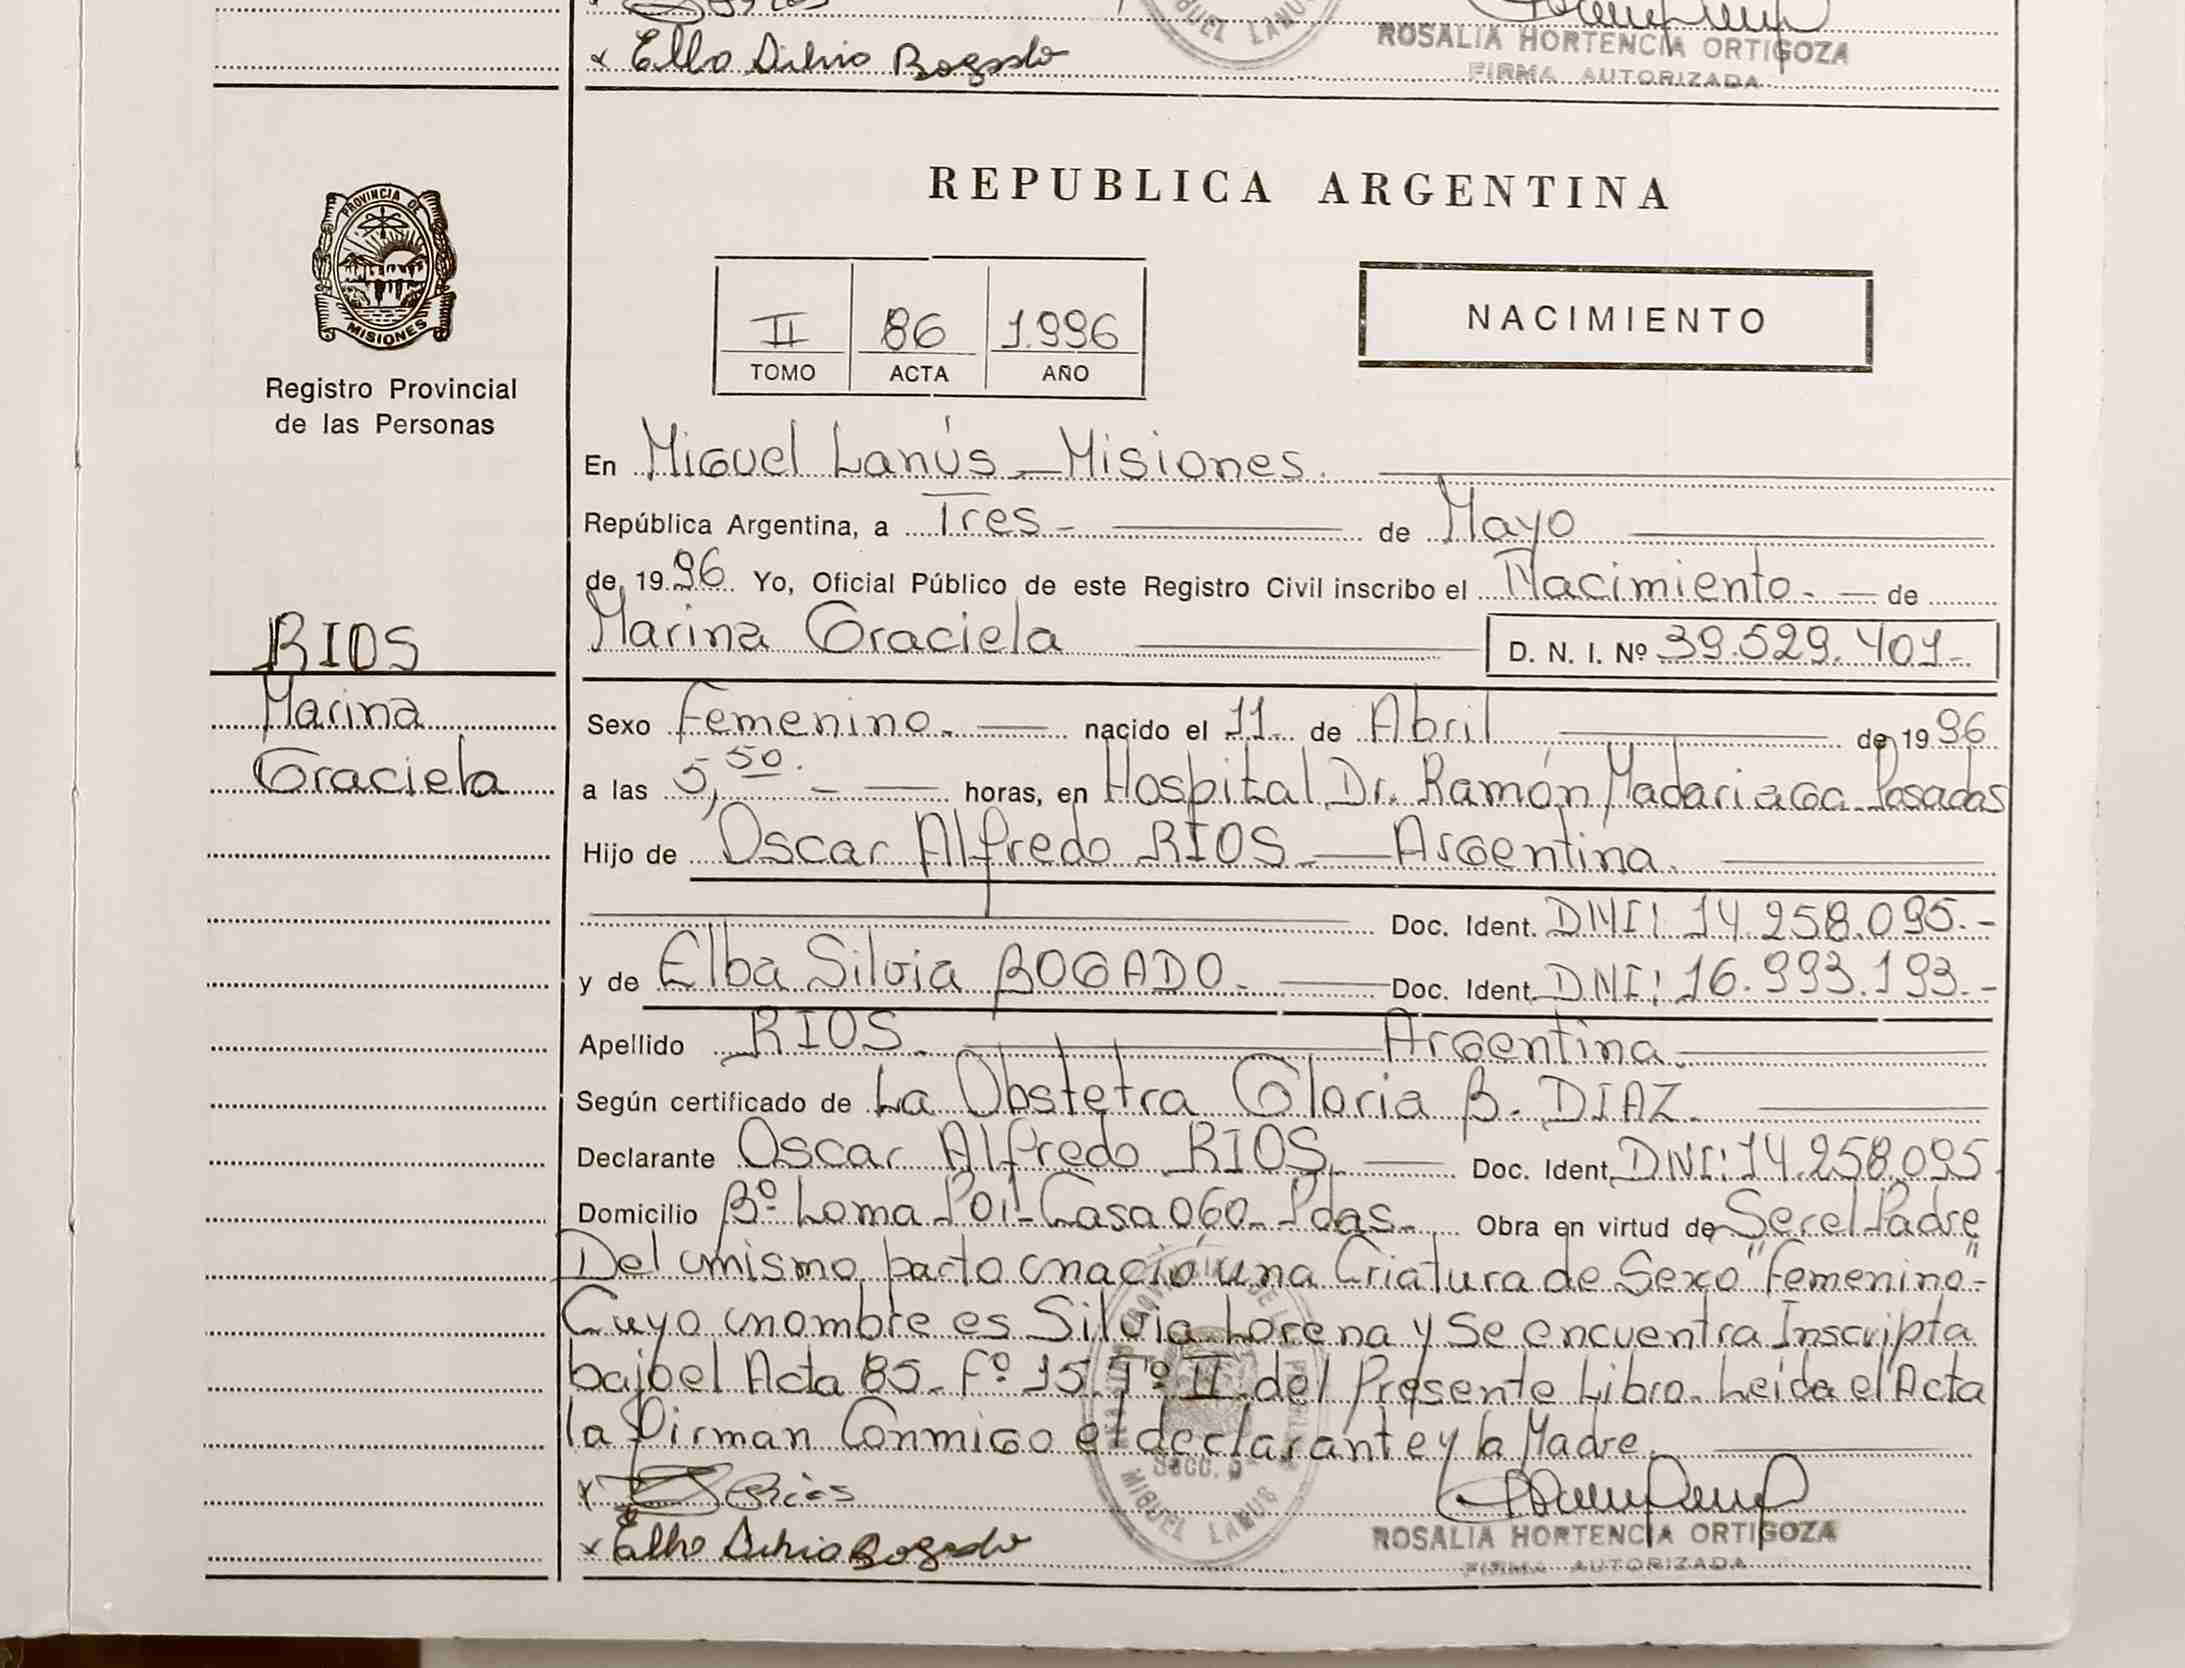 x Elba Silvia Bogado
MIGUEL LANUS
ROSALIA HORTENCIA ORTIGOZA
FIRMA AUTORIZADA
PROVINCIA DE
MISIONES
Registro Provincial
de las Personas
REPUBLICA ARGENTINA
II 86 1.996
TOMO ACTA AÑO
NACIMIENTO
En Miguel Lanús - Misiones.
República Argentina, a Tres - de Mayo
de 19 96 Yo, Oficial Público de este Registro Civil inscribo el Nacimiento. - de
RIOS
Marina
Graciela
Marina Graciela D. N. I. Nº 39.529.401-
Sexo Femenino. - nacido el 11 de Abril de 19 96
a las 5,50. - horas, en Hospital Dr. Ramón Madariaga Posadas
Hijo de Oscar Alfredo RIOS - Argentina.
Doc. Ident. DNI: 14.258.095.-
y de Elba Silvia BOGADO. - Doc. Ident. DNI: 16.993.193.-
Apellido RIOS. Argentina
Según certificado de La Obstetra Gloria B. DIAZ.
Declarante Oscar Alfredo RIOS - Doc. Ident. DNI: 14.258.095.
Domicilio Bº Loma Poi - Casa 060 - Pdas. Obra en virtud de Ser el Padre
Del mismo parto nació una Criatura de Sexo "Femenino"-
Cuyo nombre es Silvia Lorena y Se encuentra Inscripta
bajo el Acta 85. Fº 15. Tº II. del Presente Libro. Leída el Acta
la Firman Conmigo el declarante y la Madre.
x Rios
x Elba Silvia Bogado
SECC. 5ª
MIGUEL LANUS
ROSALIA HORTENCIA ORTIGOZA
FIRMA AUTORIZADA